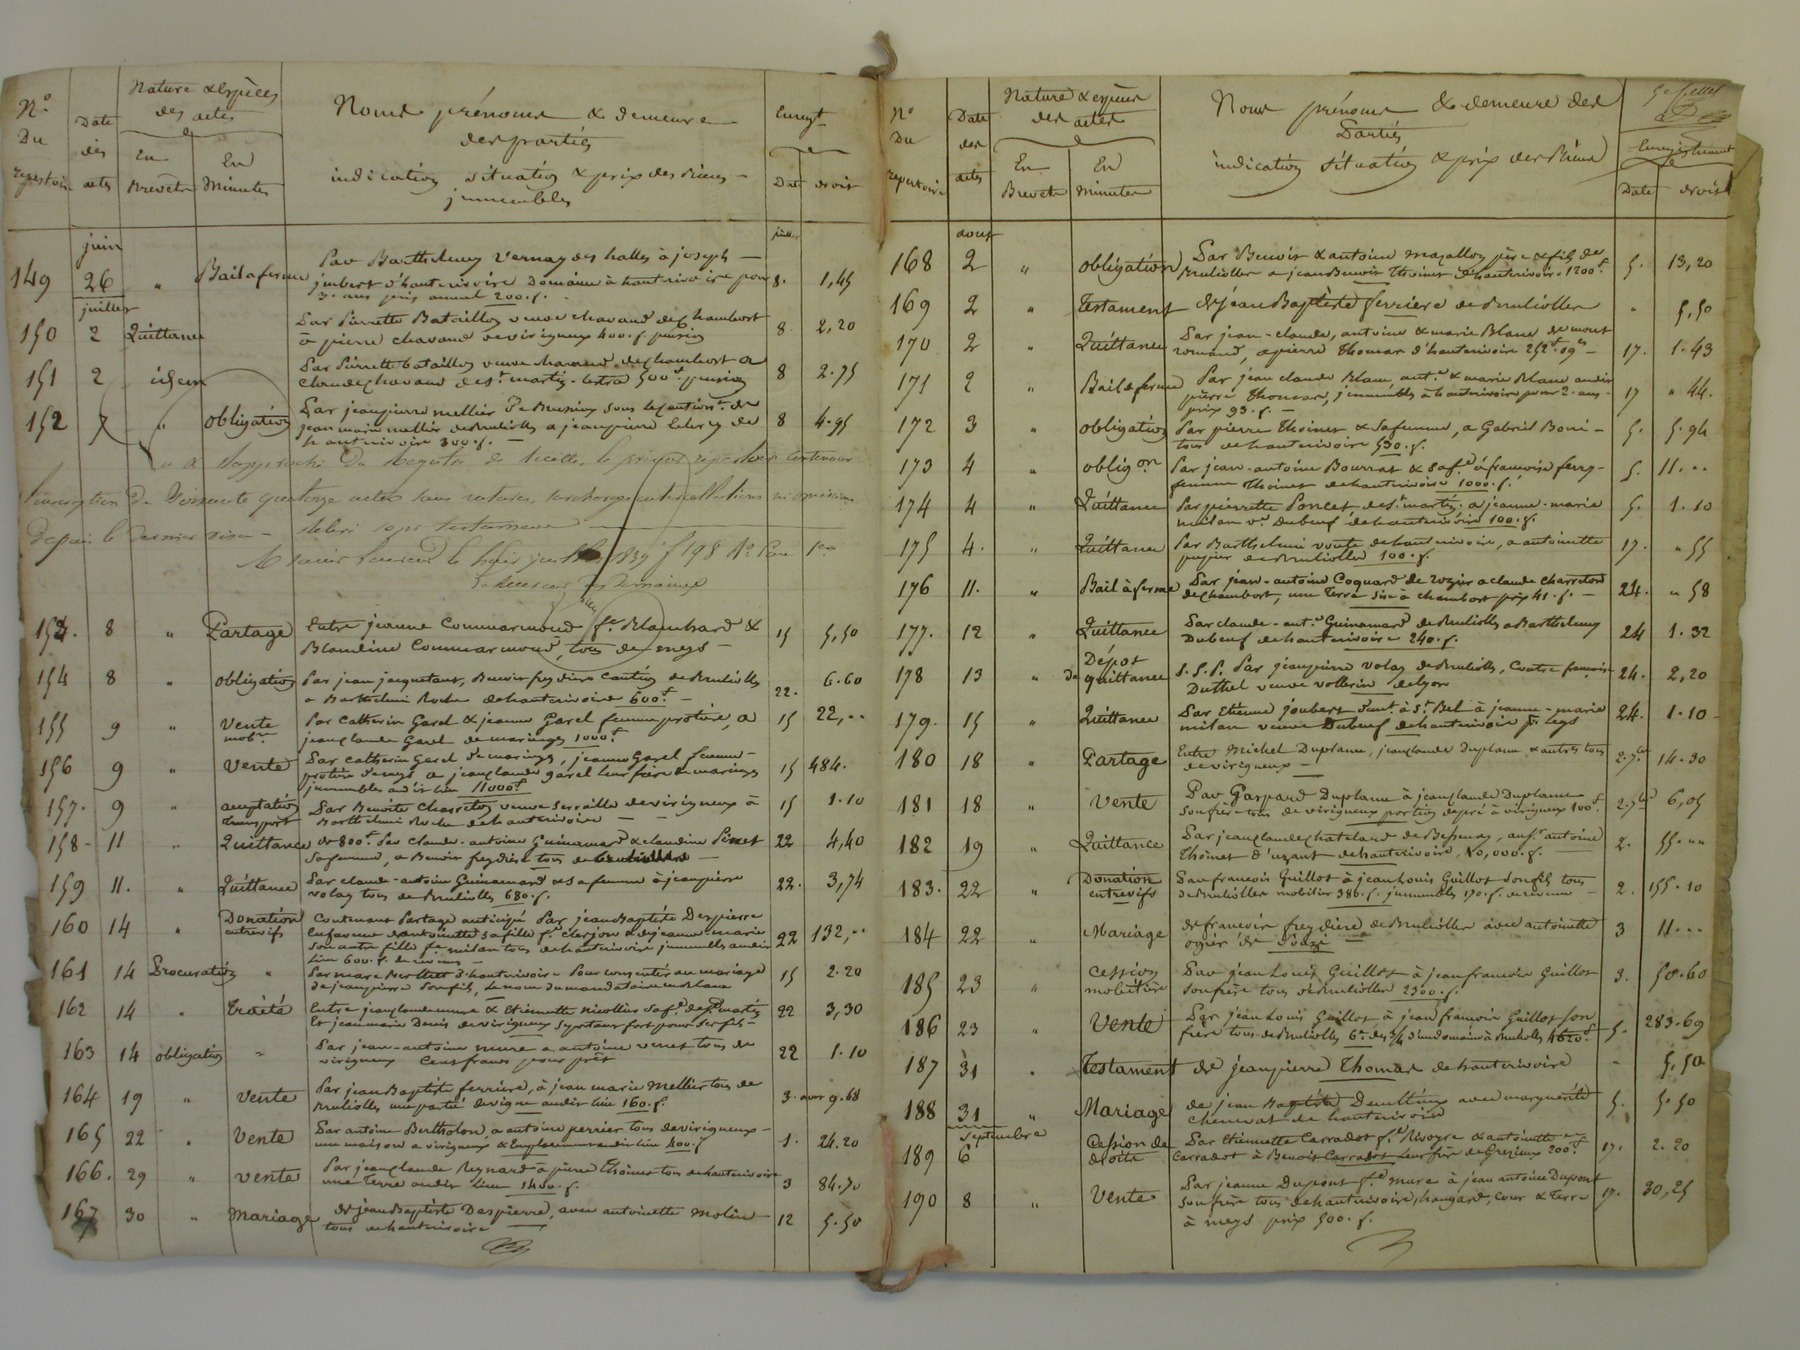 N.o Du repertoire
Date des actes
Nature & espèces des actes
En Brevets
En Minutes
Noms prénoms & demeure des parties
indication situation & prix des biens immeubles
Enregt
Date droit
juin juillet
149 26 " Bail a ferme Par Barthelemy Vernay des halles à joseph
imbert d'hauterivoire Domaine à hauterivoire pour 8. 1,45
3. ans prix annuel 200. f.
juillet
150 2 Quittance Par Pierrette Bataillon veuve chavand de chambost 8. 2,20
à pierre chavand de virigneux 400. f.
151 2 idem Par Pierrette bataillon veuve chavand de chambost a 8 2.75
claude chavand de St. martin 500 f.
152 7 " obligation Par jeanpierre mellier de Brussieu sous le caution.t de 8 4.95
jean marie mellier de Brulioles a jeanpierre de
hauterivoire 300. f.
depuis le dernier visa
153. 8 " Partage Entre jeanne Commarmond f.e Blanchard & 15 5,50
Blandine Commarmond, tous de meys
154 8 " obligation Par jean jacquetant, Benoit freydiere caution de Brulioles 22. 6.60
a Barthelemi Roche de hauterivoire 600 f.
155 9 " Vente mob.re Par Catherin Garel & jeanne Garel femme protiere, a 15 22,"
jeanclaude Garel de maringes 1000 f.
156 9 " Vente Par Catherin Garel de maringes, jeanne Garel femme
protiere de meys a jeanclaude garel leur frère de maringes 15 484.
immeubles audit lieu 11000 f.
157. 9 " acceptation transport Par Benoite Charreton veuve Serraille de virigneux à 15 1.10
Barthelemi Roche de hauterivoire
158. 11 " Quittance de 800 f. Par claude-antoine Guinamard & claudine Pinet 22 4,40
sa femme, a Benoit freydiere tous de Brulioles
159 11. " Quittance Par claude-antoine Guinamard & sa femme à jeanpierre 22. 3,74
volay tous de Brulioles 680. f.
160 14 " Donation entrevifs Contenant Partage anticipé Par jeanBaptiste Despierre
en faveur d'antoinette sa fille f.e clerjon & de jeanne marie 22 132,"
son autre fille f.e milan tous de hauterivoire immeubles audit
lieu 600. f. de revenu
161 14 Procuration " Par marc Berthet d'hauterivoire Pour consentir au mariage 15 2.20
de jeanpierre son fils, le nom du mandataire en blanc
162 14 " Traité Entre jeanclaude mure & Etiennette nicollier sa f.e de St. martin 22 3,30
Et jeanmarie Denis de virigneux se portant fort pour ses fils
163 14 obligation " Par jean-antoine mure a antoine venet tous de 22 1.10
virigneux Cent francs pour prêt
164 19 " Vente Par jeanBaptiste ferriere, à jean marie Mellier tous de 3. aout 9.68
Brulioles, une partie de vigne audit lieu 160. f.
165 22 " Vente Par antoine Bertholon, a antoine perrier tous de virigneux 1. 24.20
une maison a virigneux & Emplacement audit lieu 400. f
166. 29 " Vente Par jeanclaude Reynard à pierre Thoinet tous de hauterivoire 3 84.70
une Terre audit lieu 1400. f.
167 30 " Mariage de jeanBaptiste Despierre, avec antoinette Molin 12 5.50
tous de hauterivoire
N.o Du repertoire
Date des actes
Nature & espèces des actes
En Brevets
En Minutes
Noms prénoms & demeure des Parties
indication situation & prix des biens
Enregistrement
Date droit
aout
168 2 " obligation Par Benoit & antoine magallon père & fils de 5. 13,20
Brulioles a jean Benoit Thoinet de hauterivoire 1200 f.
169 2 " Testament de jean Baptiste ferriere de Brulioles " 5,50
170 2 " Quittance Par jean-claude, antoine & marie Blanc de mont
romand, a pierre Thomas d'hauterivoire 252 f. 09 c. 17. 1.43
171 2 " Bail a ferme Par jean claude Blanc, ant.e & marie Blanc audit
pierre Thomas, immeubles à hauterivoire pour 2. ans 17 " 44.
prix 93. f.
172 3 " obligation Par pierre Thoinet & sa femme, a Gabriel Boni- 5. 5.94
tous de hauterivoire 530. f.
173 4 " oblig.on Par jean-antoine Bourrat & sa f.e à francoise ferry 5. 11."
femme Thoinet de hauterivoire 1000. f.
174 4 " Quittance Par pierrette Poncet de St. martin a jeanne-marie 5. 1.10
milan v.e Dubeuf de hauterivoire 100. f.
175 4. " Quittance Par Barthelemi voute de hauterivoire, a antoinette 17. " 55
de Brulioles 100. f.
176 11. " Bail à ferme Par jean-antoine Coquard de rozier a claude charreton 24. " 58
de chambost, une Terre sise a chambost prix 41. f.
177. 12 " Quittance Par claude-ant.e Guinamard de Brulioles a Barthelemy 24 1.32
Dubeuf de hauterivoire 240. f.
178 13 " Dépot de quittance S.S.P. Par jeanpierre volay de Brulioles, Contre francoise 24. 2,20
Duthel veuve vollerin de lyon
179. 15 " Quittance Par Etienne joubert de St. Bel à jeanne-marie 24. 1.10
milan veuve Dubeuf de hauterivoire p.r legs
180 18 " Partage Entre Michel Duplanne, jeanclaude Duplanne & autres tous 2. 7.bre 14.30
de virigneux
181 18 " Vente Par Gaspard Duplanne à jeanclaude Duplanne 2. 7.bre 6,05
son frère tous de virigneux portion de pré à virigneux 100 f.
182 19 " Quittance Par jeanclaude chatelard de Bessenay, a antoine 2. 55."
Thoinet d'uzant de hauterivoire, 10,000. f.
183. 22 " Donation entrevifs Par francois Guillot à jeanLouis Guillot son fils tous 2. 155.10
de Brulioles mobilier 386. f. immeubles 170. f. de revenu
184 22 " Mariage de francois freydiere de Brulioles avec antoinette 3 11."
ogier de
185 23 " Cession mobiliere Par jeanLouis Guillot à jeanfrancois Guillot 3. 50.60
son frère tous de Brulioles 2300. f.
186 23 " Vente Par jean Louis Guillot à jean francois Guillot son
frère tous de Brulioles 6.e des 3/4 d'un domaine à Brulioles 4620 f. 5. 283.69
187 31 " Testament de jeanpierre Thomas de hauterivoire - 5,50
188 31 " Mariage de jean Baptiste avec marguerite 5. 5.50
chenevat de hauterivoire
Septembre
189 6 Cession de droits Par Etiennette Carradot f.e Rivoyre & antoinette 17. 2.20
Carradot à Benoit Carradot leur frère de Grezieux 200 f.
190 8 " Vente Par jeanne Dupont f.e mure à jean antoine Dupont
son frère tous de hauterivoire, hangard, cour & Terre 17. 30,25
à meys prix 500. f.